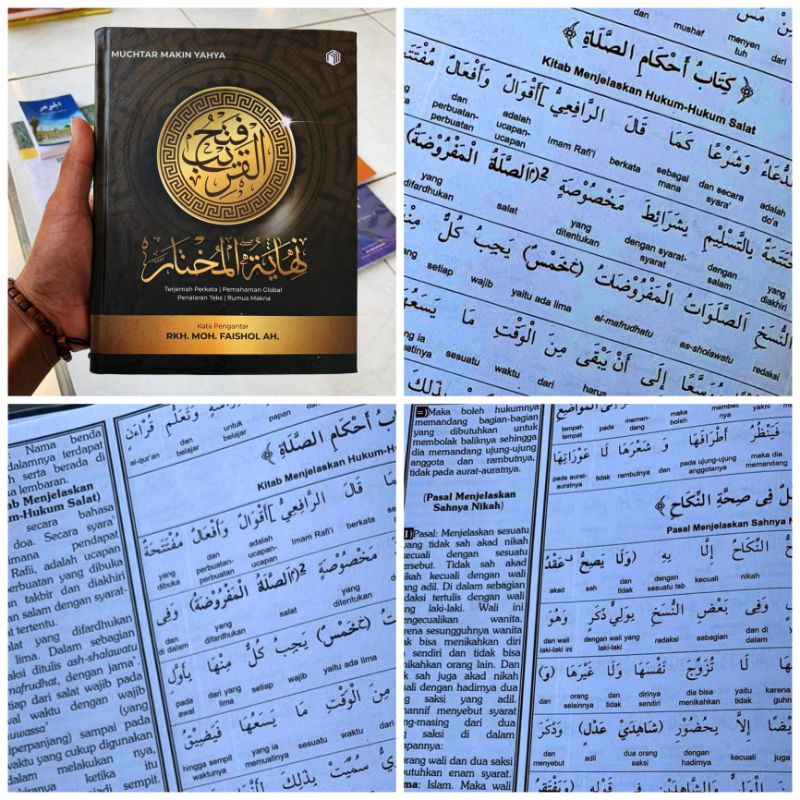 MUCHTAR MAKIN YAHYA
فتح القريب
نهاية المختار
Terjemah Perkata | Pemahaman Global
Penalaran Teks | Rumus Makna
Kata Pengantar
RKH. MOH. FAISHOL AH.
dan mushaf menyen tuh dari
كِتَابُ أَحْكَامِ الصَّلَاةِ
Kitab Menjelaskan Hukum-Hukum Salat
وَشَرْعًا كَمَا قَالَ الرَّافِعِيُّ أَقْوَالٌ وَأَفْعَالٌ
do'a adalah dan secara syara' sebagai mana berkata Imam Rafi'i adalah ucapan-ucapan dan perbuatan-perbuatan
بِالتَّسْلِيْمِ بِشَرَائِطَ مَخْصُوْصَةٍ (الصَّلَاةُ الْمَفْرُوْضَةُ)
diakhiri dengan salam dengan syarat-syarat yang ditentukan salat yang difardhukan
النُّسَخِ الصَّلَوَاتُ الْمَفْرُوْضَاتُ (خَمْسٌ) يَجِبُ كُلٌّ مِنْهَا
redaksi as-sholawatu al-mafrudhatu yaitu ada lima wajib setiap yang
إِلَى أَنْ يَبْقَى مِنَ الْوَقْتِ مَا يَسَعُهَا
harus dari waktu sesuatu
Nama benda
dalamnya terdapat
serta berada di
lembaran.
Menjelaskan
Salat)
secara bahasa
doa. Secara syara'
pendapat
Rafii, adalah ucapan
perbuatan yang dibuka
takbir dan diakhiri
salam dengan syarat-
tertentu.
yang difardhukan
lima. Dalam sebagian
ditulis ash-shalawatu
mafrudhat, dengan jama'.
dari salat wajib pada
waktu dengan wajib
(yang
diperpanjang) sampai pada
waktu yang cukup digunakan
melakukan nya,
ketika itu
menjadi sempit.
وَتَعَلُّمِ قُرْآنٍ
al-qur'an belajar untuk belajar papan dan
كِتَابُ أَحْكَامِ الصَّلَاةِ
Kitab Menjelaskan Hukum-H
قَالَ الرَّافِعِيُّ أَقْوَالٌ وَأَفْعَالٌ مُفْتَتَحَةٌ
yang dibuka dan perbuatan-perbuatan adalah ucapan-ucapan Imam Rafi'i berkata
مَخْصُوْصَةٍ (الصَّلَاةُ الْمَفْرُوْضَةُ) وَفِي
dan di dalam yang difardhukan salat yang ditentukan
(خَمْسٌ) يَجِبُ كُلٌّ مِنْهَا بِأَوَّلِ
pada awal dari yang setiap wajib yaitu ada lima
مِنَ الْوَقْتِ مَا يَسَعُهَا فَيَضِيْقُ
hingga sempit waktunya yang ia memuatinya sesuatu waktu dari
سُمِّيَتْ بِذَلِكَ
Maka boleh hukumnya
memandang bagian-bagian
yang dibutuhkan untuk
membolak baliknya sehingga
dia memandang ujung-ujung
anggota dan rambutnya,
tidak pada aurat-auratnya.
(Pasal Menjelaskan
Sahnya Nikah)
Pasal: Menjelaskan sesuatu
yang tidak sah akad nikah
kecuali dengan sesuatu
tersebut. Tidak sah akad
nikah kecuali dengan wali
yang adil. Di dalam sebagian
redaksi tertulis dengan wali
yang laki-laki. Wali ini
mengecualikan wanita.
Karena sesungguhnya wanita
tidak bisa menikahkan diri
sendiri dan tidak bisa
menikahkan orang lain. Dan
tidak sah juga akad nikah
kecuali dengan hadirnya dua
saksi yang adil.
menyebut syarat
masing-masing dari dua
saksi di dalam
ucapannya:
orang wali dan dua saksi
butuhkan enam syarat.
Islam. Maka wali
tempat-tempat pada meman-dang maka boleh nya memberi yakni
فَيَنْظُرُ أَطْرَافَهَا وَ شَعْرَهَا لَا عَوْرَاتِهَا
pada aurat-auratnya tidak rambutnya dan pada ujung-ujung anggotanya maka dia memandang
فِى صِحَّةِ النِّكَاحِ
Pasal Menjelaskan Sahnya N
(وَلَا يَصِحُّ عَقْدُ النِّكَاحِ إِلَّا بِهِ
akad sah dan tidak dengan sesuatu tsb kecuali nikah
وَفِي بَعْضِ النُّسَخِ بِوَلِيٍّ ذَكَرٍ وَهُوَ
dan wali laki-laki ini dengan wali yang laki-laki redaksi sebagian dan di dalam
لَا تُزَوِّجُ نَفْسَهَا وَلَا غَيْرَهَا (وَ)
dan orang selainnya dan tidak dirinya sendiri dia bisa menikahkan yaitu tidak karena
إِلَّا بِحُضُوْرِ (شَاهِدَيْ عَدْلٍ) وَذَكَرَ
dan menyebut adil dua orang saksi dengan hadirnya kecuali juga